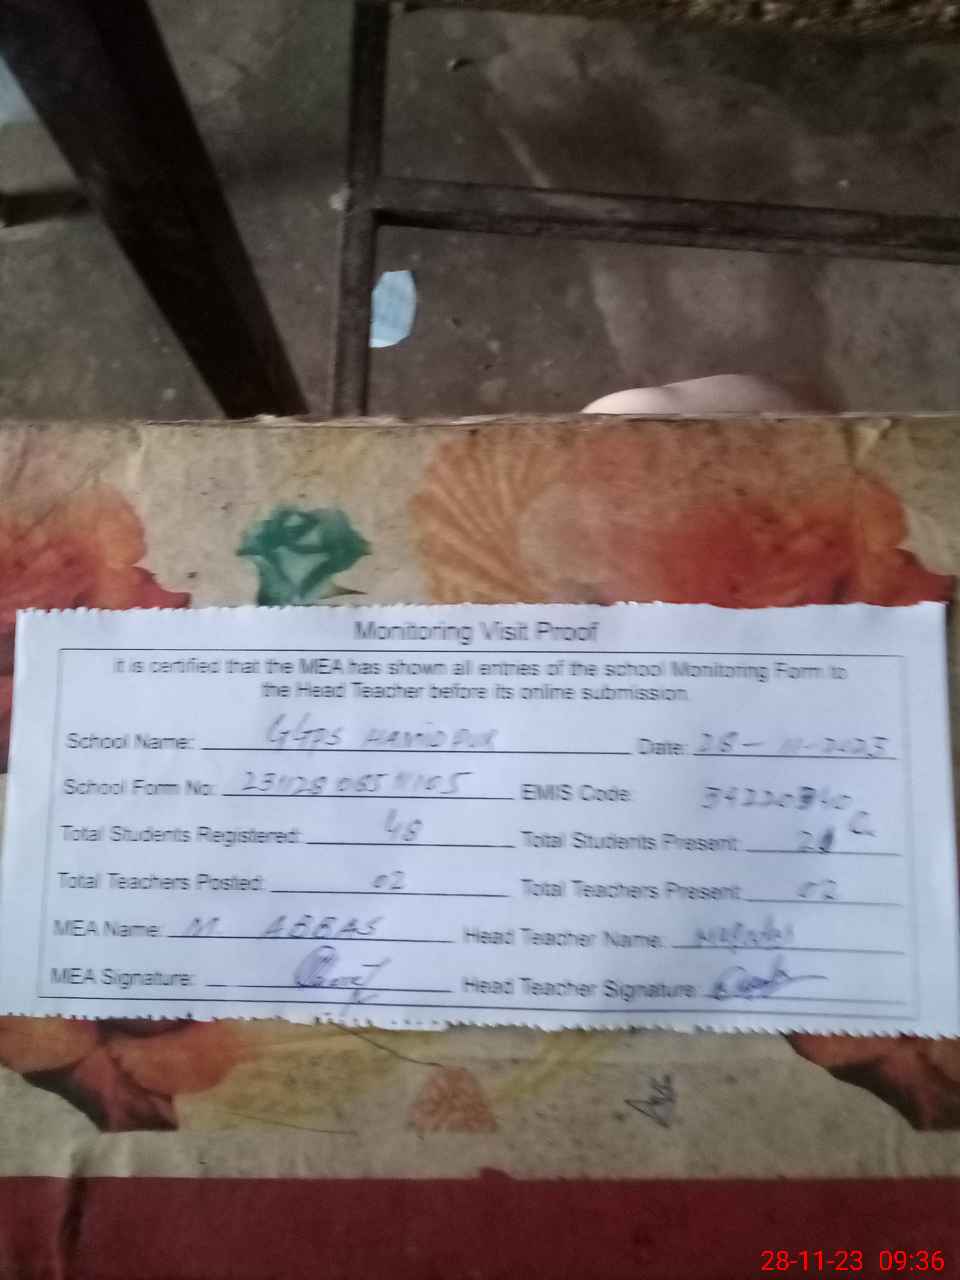 Monitoring Visit Proof
it is certified that the MEA has shown all entries of the school Monitoring Form to
the Head Teacher before its online submission.
School Name: GGPS HAMID PUR Date: 28-11-2023
School Form No: EMIS Code:
Total Students Registered: 48 Total Students Present:
Total Teachers Posted: 02 Total Teachers Present: 02
MEA Name: M ABBAS Head Teacher Name:
MEA Signature: Head Teacher Signature:
28-11-23 09:36